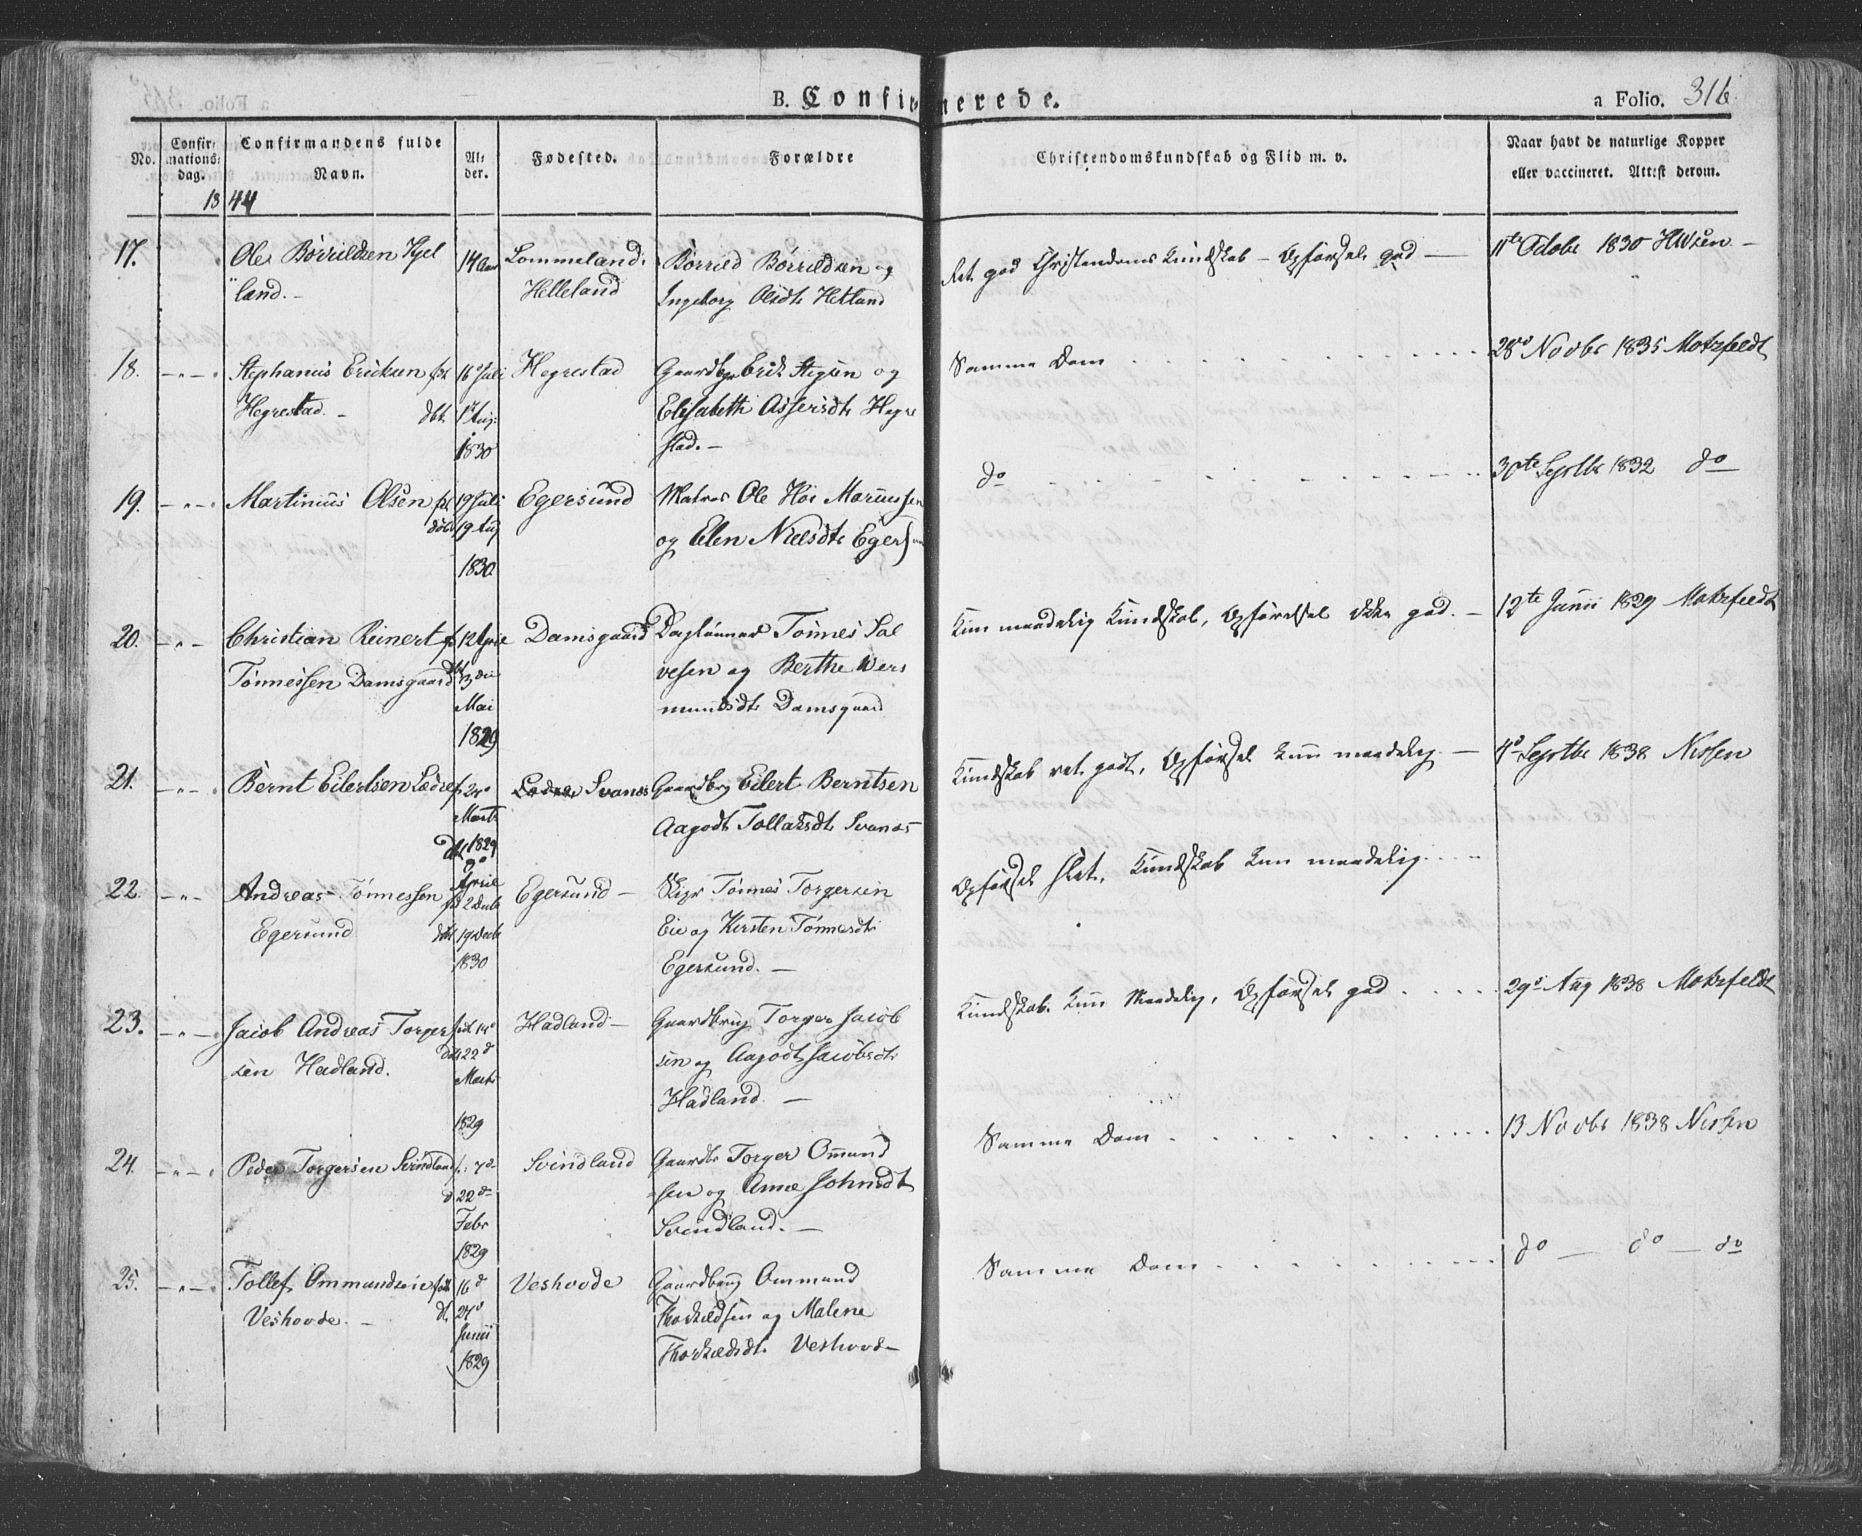 B. Confirmerede.
a Folio. 316
No.
Confir-
mations-
dag.
Confirmandens fulde
Navn.
Al-
der.
Fødested.
Forældre
Christendomskundskab og Flid m. v.
Naar havt de naturlige Kopper
eller vaccineret. Attest derom.
1844
17. Ole Børildsen Hjel
land.
14 Aar
Lommeland
Helleland
Børrild Børrildsen og
Ingeborg Olsdt Hetland
Ret god Christendoms Kundskab - Opførsel god
11te Octobr 1830
18. Stephanus Ericksen
Hegrestad. dbt.
16 Juli
1st Aug:
1830
Hegrestad
Gaardbr Erik Aagsen og
Elisabeth Assersdt Hegre
stad.
Samme Dom
28d Novbr 1835 Motzfeldt
19. Martinius Olsen
19 Juli
19 Aug
1830
Egersund
Matros Ole Høi Mariussen
og Elen Nielsdt Egersund
do
30te Septbr 1832 do
20. Christian Reinert
Tønnessen Damsgaard
12 April
3die
Mai
1829
Damsgaard
Daglønner Tønnes Sal
vesen og Berthe Wers
mundsdt Damsgaard
Kun maadelig Kundskab, Opførsel ikke god.
12te Junii 1829 Motzfeldt
21. Bernt Eilertsen Lædre
f 24d
Marts
dbt 1829
April
Svanes
Gaardbrg Eilert Berntsen
Aagodt Tollaksdt Svanes
Kundskab ret godt, Opførsel kun maadelig
4d Septbr 1838 Nissen
22. Andreas Tønnessen
Egersund
2 Decb
dbt 19 Decb
1830
Egersund
Tønnes Torgersen
Eie og Kirsten Tønnesdt
Egersund.
Opførsel slet, Kundskab kun maadelig
23. Jacob Andreas Torger
sen Hadland.
14d
22d
Marts
1829
Hadland
Gaardbrug Torger Jacob
sen og Aagodt Jacobsdt
Hadland
Kundskab kun maadelig, Opførsel god
29d Aug 1838 Motzfeldt
24. Peder Torgersen Svindland
f: 7d
d 22d
Febr
1829
Svindland
Gaardbr Torger Ommund
sen og Anne Johnsdt
Svindland.
Samme Dom
13 Novbr 1838 Nissen
25. Tollef Ommundsen
Veshovde
16d
24d
Junii
1829
Veshovde
Gaardbrug Ommund
Thorkildsen og Malene
Thorkildsdt Veshovd
Samme Dom
do do do